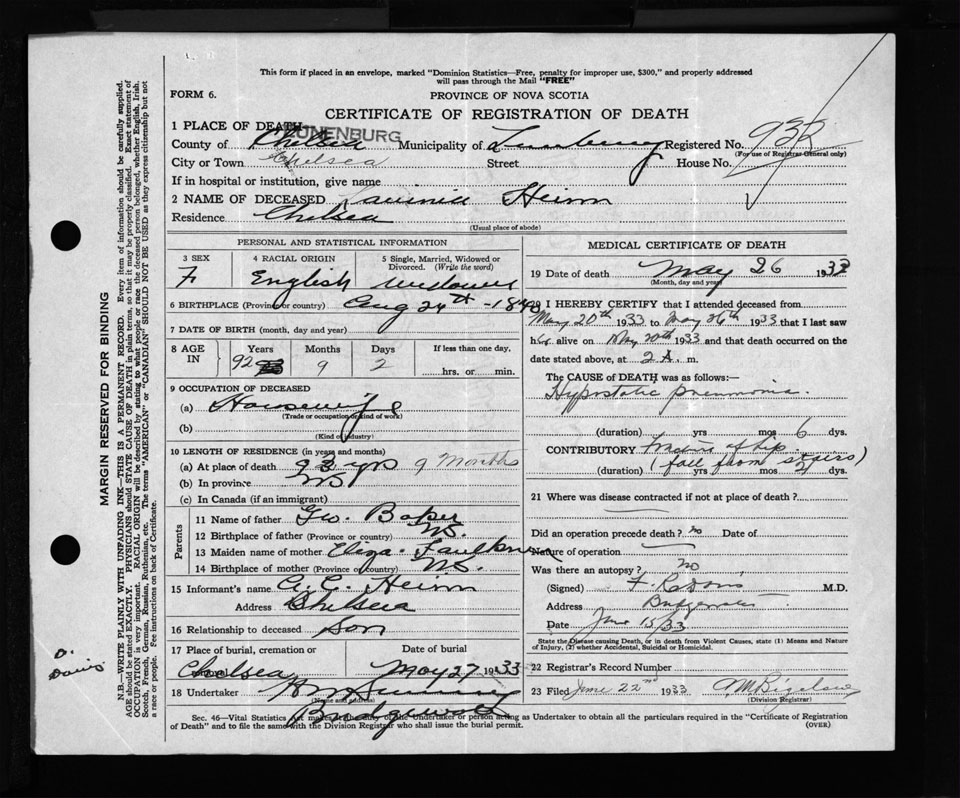 This form if placed in an envelope, marked "Dominion Statistics—Free, penalty for improper use, $300," and properly addressed
will pass through the Mail "FREE"
FORM 6.
PROVINCE OF NOVA SCOTIA
CERTIFICATE OF REGISTRATION OF DEATH
1 PLACE OF DEATH
LUNENBURG
County of Chelsea Municipality of Lunenburg Registered No. 932
(For use of Registrar General only)
City or Town Chelsea Street House No.
If in hospital or institution, give name
2 NAME OF DECEASED Lavinia Heim
Residence Chelsea
(Usual place of abode)
PERSONAL AND STATISTICAL INFORMATION
3 SEX 4 RACIAL ORIGIN 5 Single, Married, Widowed or
Divorced. (Write the word)
F English Widower
6 BIRTHPLACE (Province or country) Aug 24th - 1840
7 DATE OF BIRTH (month, day and year)
8 AGE IN Years Months Days If less than one day,
92 9 2 hrs. or min.
9 OCCUPATION OF DECEASED
(a) Housewife
(Trade or occupation or kind of work)
(b)
(Kind of industry)
10 LENGTH OF RESIDENCE (in years and months)
(a) At place of death 93 yrs 9 Months
(b) In province NS
(c) In Canada (if an immigrant)
Parents
11 Name of father Geo. Baker
12 Birthplace of father (Province or country) NS.
13 Maiden name of mother Eliza Faulkner
14 Birthplace of mother (Province or country) NS.
15 Informant's name Heim
Address Chelsea
16 Relationship to deceased Son
17 Place of burial, cremation or Date of burial
Chelsea May 27 1933
18 Undertaker
(Name and address)
Bridgewater
MEDICAL CERTIFICATE OF DEATH
19 Date of death May 26 1933
(Month, day and year)
20 I HEREBY CERTIFY that I attended deceased from
May 20th 1933 to May 26th 1933 that I last saw
her alive on May 20th 1933 and that death occurred on the
date stated above, at 2 A. m.
The CAUSE of DEATH was as follows:—
Hypostatic pneumonia.
(duration) yrs mos 6 dys.
CONTRIBUTORY of hip
(fall from stairs)
(duration) yrs mos dys.
21 Where was disease contracted if not at place of death?
Did an operation precede death? no Date of
Nature of operation
Was there an autopsy? no
(Signed) F. M.D.
Address Bridgewater
Date June 15/33
State the Disease causing Death, or in death from Violent Causes, state (1) Means and Nature
of Injury, (2) whether Accidental, Suicidal or Homicidal.
22 Registrar's Record Number
23 Filed June 22nd 1933 Bigelow
(Division Registrar)
Sec. 46—Vital Statistics Act makes it the duty of the Undertaker or person acting as Undertaker to obtain all the particulars required in the "Certificate of Registration
of Death" and to file the same with the Division Registrar who shall issue the burial permit. (OVER)
MARGIN RESERVED FOR BINDING
N.B.—WRITE PLAINLY WITH UNFADING INK—THIS IS A PERMANENT RECORD. Every item of information should be carefully supplied.
AGE should be stated EXACTLY. PHYSICIANS should STATE CAUSE OF DEATH in plain terms, so that it may be properly classified. Exact statement of
OCCUPATION is very important. RACIAL ORIGIN will be described by stating to what people or race the deceased person belonged, whether English, Irish,
Scotch, French, German, Russian, Ruthenian, etc. The terms "AMERICAN" or "CANADIAN" SHOULD NOT BE USED as they express citizenship but not
a race or people. See instructions on back of Certificate.
D.
Davis